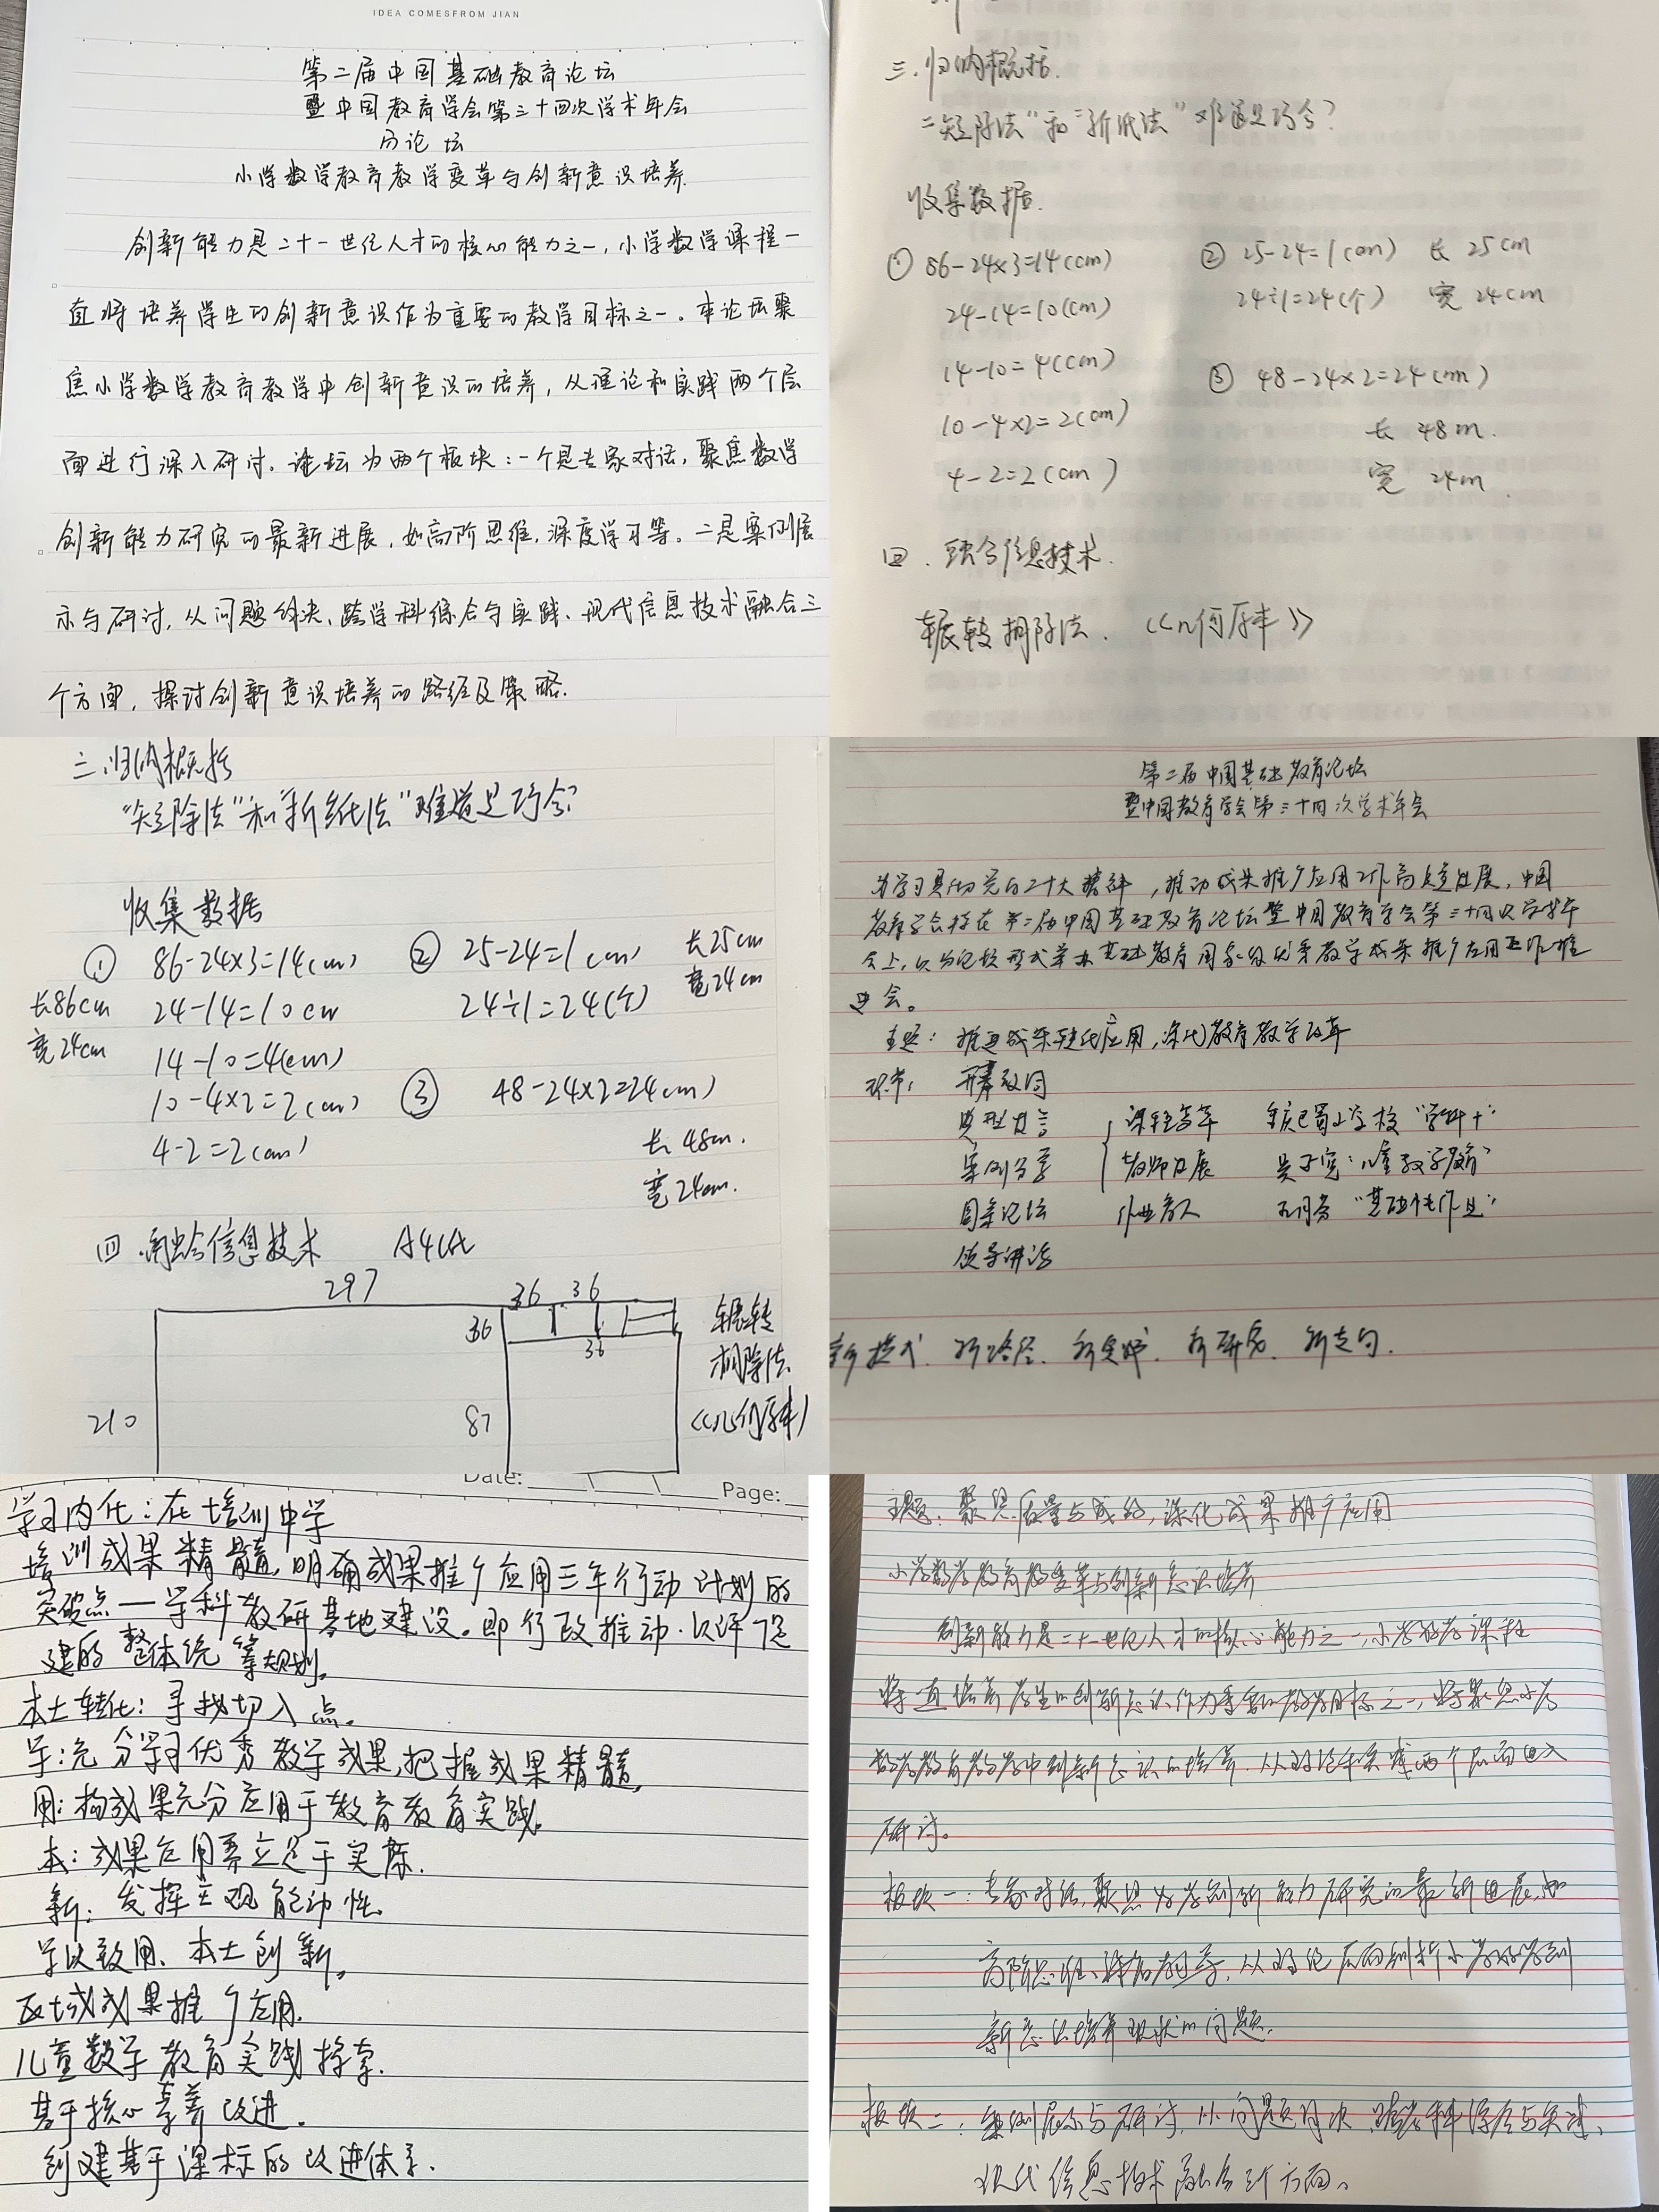 IDEA COMESFROM JIAN
第二届中国基础教育论坛
暨中国教育学会第三十四次学术年会
分论坛
小学数学教育教学变革与创新意识培养.
创新能力是二十一世纪人才的核心能力之一,小学数学课程一
直将培养学生的创新意识作为重要的教学目标之一。本论坛聚
焦小学数学教育教学中创新意识的培养,从理论和实践两个层
面进行深入研讨。论坛为两个板块:一个是专家对话,聚焦数学
创新能力研究的最新进展,如高阶思维,深度学习等。二是案例展
示与研讨,从问题解决、跨学科综合与实践、现代信息技术融合三
个方面,探讨创新意识培养的路径及策略.
三.归纳概括.
"短除法"和"折纸法"难道是巧合?
收集数据.
① 86-24×3=14(cm)
24-14=10(cm)
14-10=4(cm)
10-4×2=2(cm)
4-2=2(cm)
② 25-24=1(cm) 长 25cm
24÷1=24(个) 宽 24cm
③ 48-24×2=24(cm)
长 48m.
宽 24m.
四.融合信息技术.
辗转相除法. 《几何原本》
三.归纳概括
"短除法"和"折纸法"难道是巧合?
收集数据
① 86-24×3=14(cm)
长86cm 24-14=10cm
宽24cm 14-10=4(cm)
10-4×2=2(cm)
4-2=2(cm)
② 25-24=1cm) 长25cm
24÷1=24(个) 宽24cm
③ 48-24×2=24cm)
长 48cm.
宽 24cm.
四.融合信息技术 A4纸
297 36 36
36 36
210 87
辗转
相除法
《几何原本》
第二届中国基础教育论坛
暨中国教育学会第三十四次学术年会
为学习贯彻党的二十大精神,推动成果推广应用工作高质量发展,中国
教育学会将在第二届中国基础教育论坛暨中国教育学会第三十四次学术年
会上,以分论坛形式举办基础教育国家级优秀教学成果推广应用工作推
进会。
主题:推进成果转化应用,深化教育教学改革
环节: 开幕致词
典型发言 课程育人 重庆巴蜀小学校 "学科+"
案例分享 教师发展 吴正宪:"儿童数学教育"
圆桌论坛 作业育人 王月芬 "基础性作业"
领导讲话
新模式. 新路径. 新实践. 新研究. 新走向.
Date:
Page:
学习内化:在培训中学
培训成果精髓,明确成果推广应用三年行动计划的
突破点—学科教研基地建设。即行政推动.以评促
建的整体统筹规划。
本土转化:寻找切入点。
学:充分学习优秀教学成果,把握成果精髓。
用:构成果充分应用于教育教育实践。
本:成果应用要立足于实际.
新:发挥主观能动性。
学以致用、本土创新。
区域成果推广应用.
儿童数学教育实践探索.
基于核心素养改进.
创建基于课标的改进体系.
主题:聚焦质量与成效,深化成果推广应用
小学数学教育教变革与创新意识培养
创新能力是二十一世纪人才的核心能力之一,小学数学课程
将一直培养学生的创新意识作为重要的教学目标之一,将聚焦小学
数学教育教学中创新意识的培养.从理论和实践两个层面进入
研讨。
板块一:专家对话,聚焦数学创新能力研究的最新进展,如
高阶思维、从理论层面剖析小学数学创
新意识培养现状的问题.
板块二:案例展示与研讨,从问题解决,跨学科综合与实践、
现代信息技术融合三个方面。